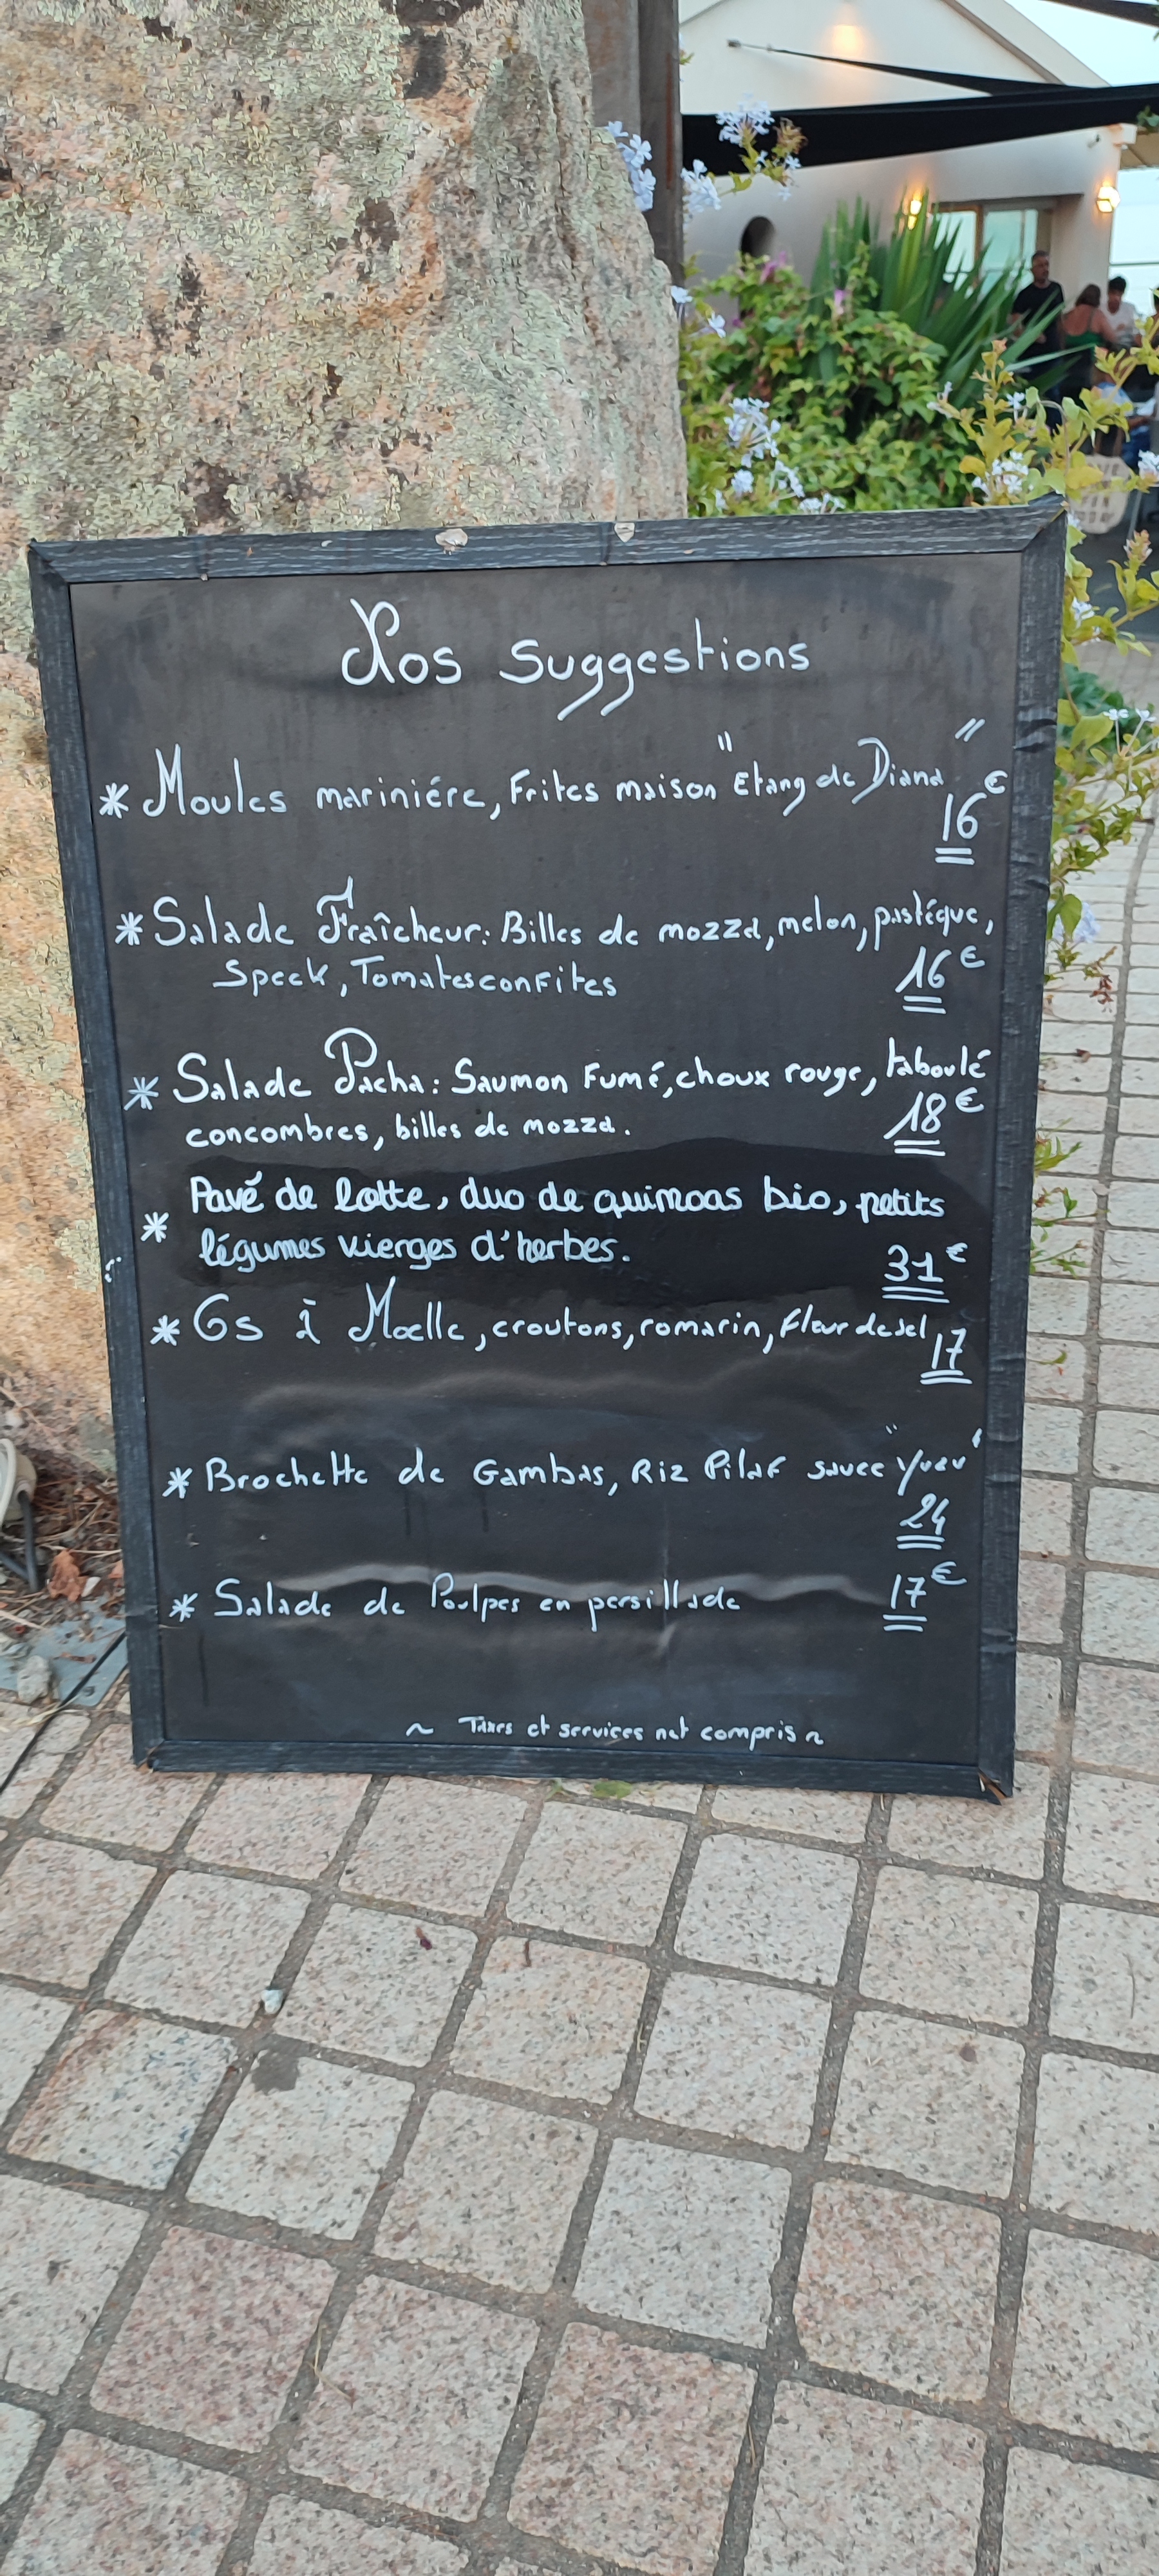 Nos suggestions
* Moules mariniére, Frites maison "Etang de Diana" 16€
* Salade Fraîcheur: Billes de mozza, melon, pastéque,
Speck, Tomates confites 16€
* Salade Pacha: Saumon Fumé, choux rouge, taboulé
concombres, billes de mozza. 18€
* Pavé de lotte, duo de quinoas bio, petits
légumes vierges d'herbes. 31€
* Os à Moelle, croutons, romarin, fleur de sel 17
* Brochette de Gambas, Riz Pilaf sauce 24
* Salade de Poulpes en persillade 17€
~ Taxes et services net compris ~